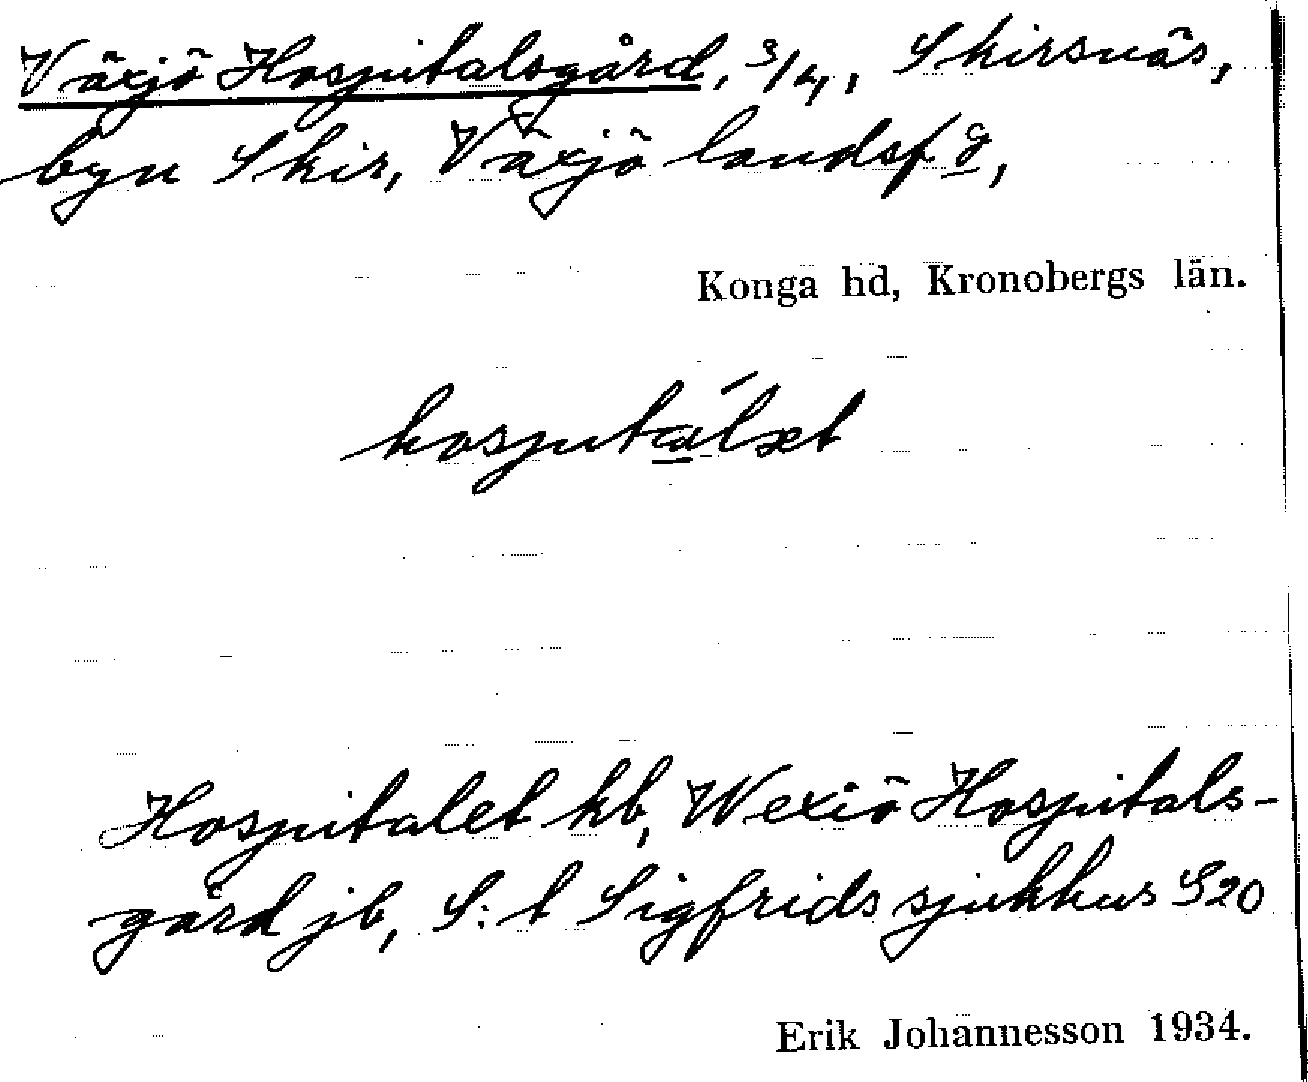 Växjö Hospitalsgård, 3/4, Skirsnäs,
byn Skir, Växjö landsf g,
Konga hd, Kronobergs län.
hospitálət
Hospitalet kb, Wexiö Hospitals-
gård jb, S:t Sigfrids sjukhus S20
Erik Johannesson 1934.